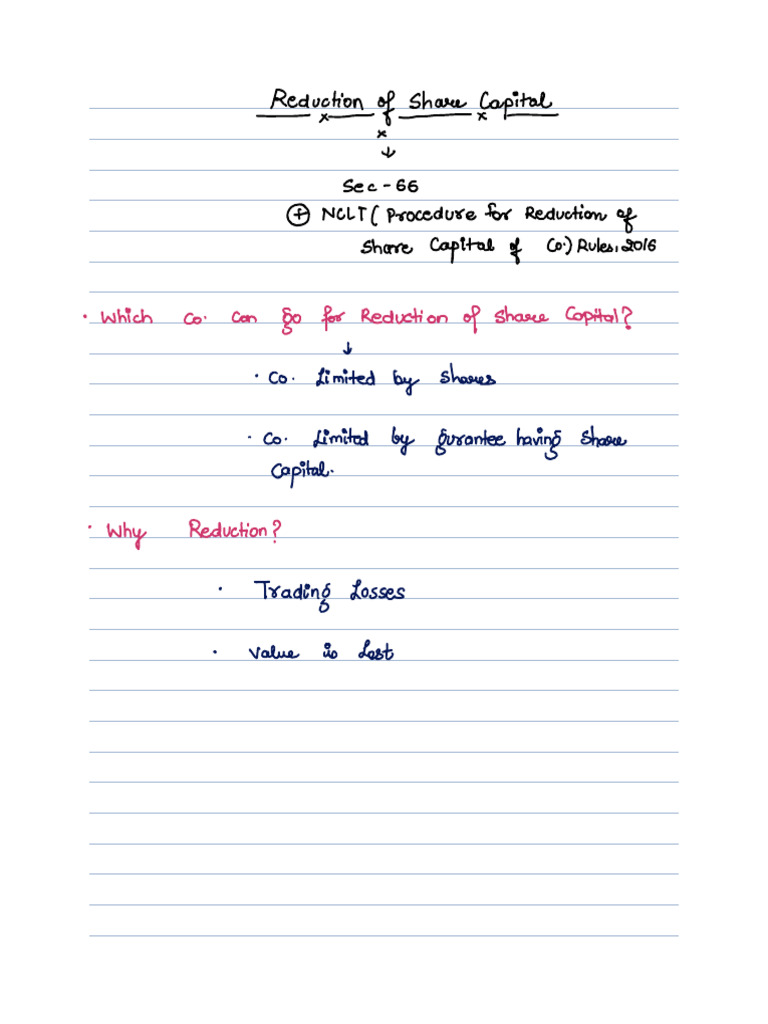 Reduction of Share Capital
Sec - 66
+ NCLT ( Procedure for Reduction of
Share Capital of Co.) Rules, 2016
• Which Co. Can go for Reduction of Share Capital?
• Co. Limited by Shares
• Co. Limited by gurantee having Share
Capital.
• Why Reduction?
• Trading Losses
• Value is Lost